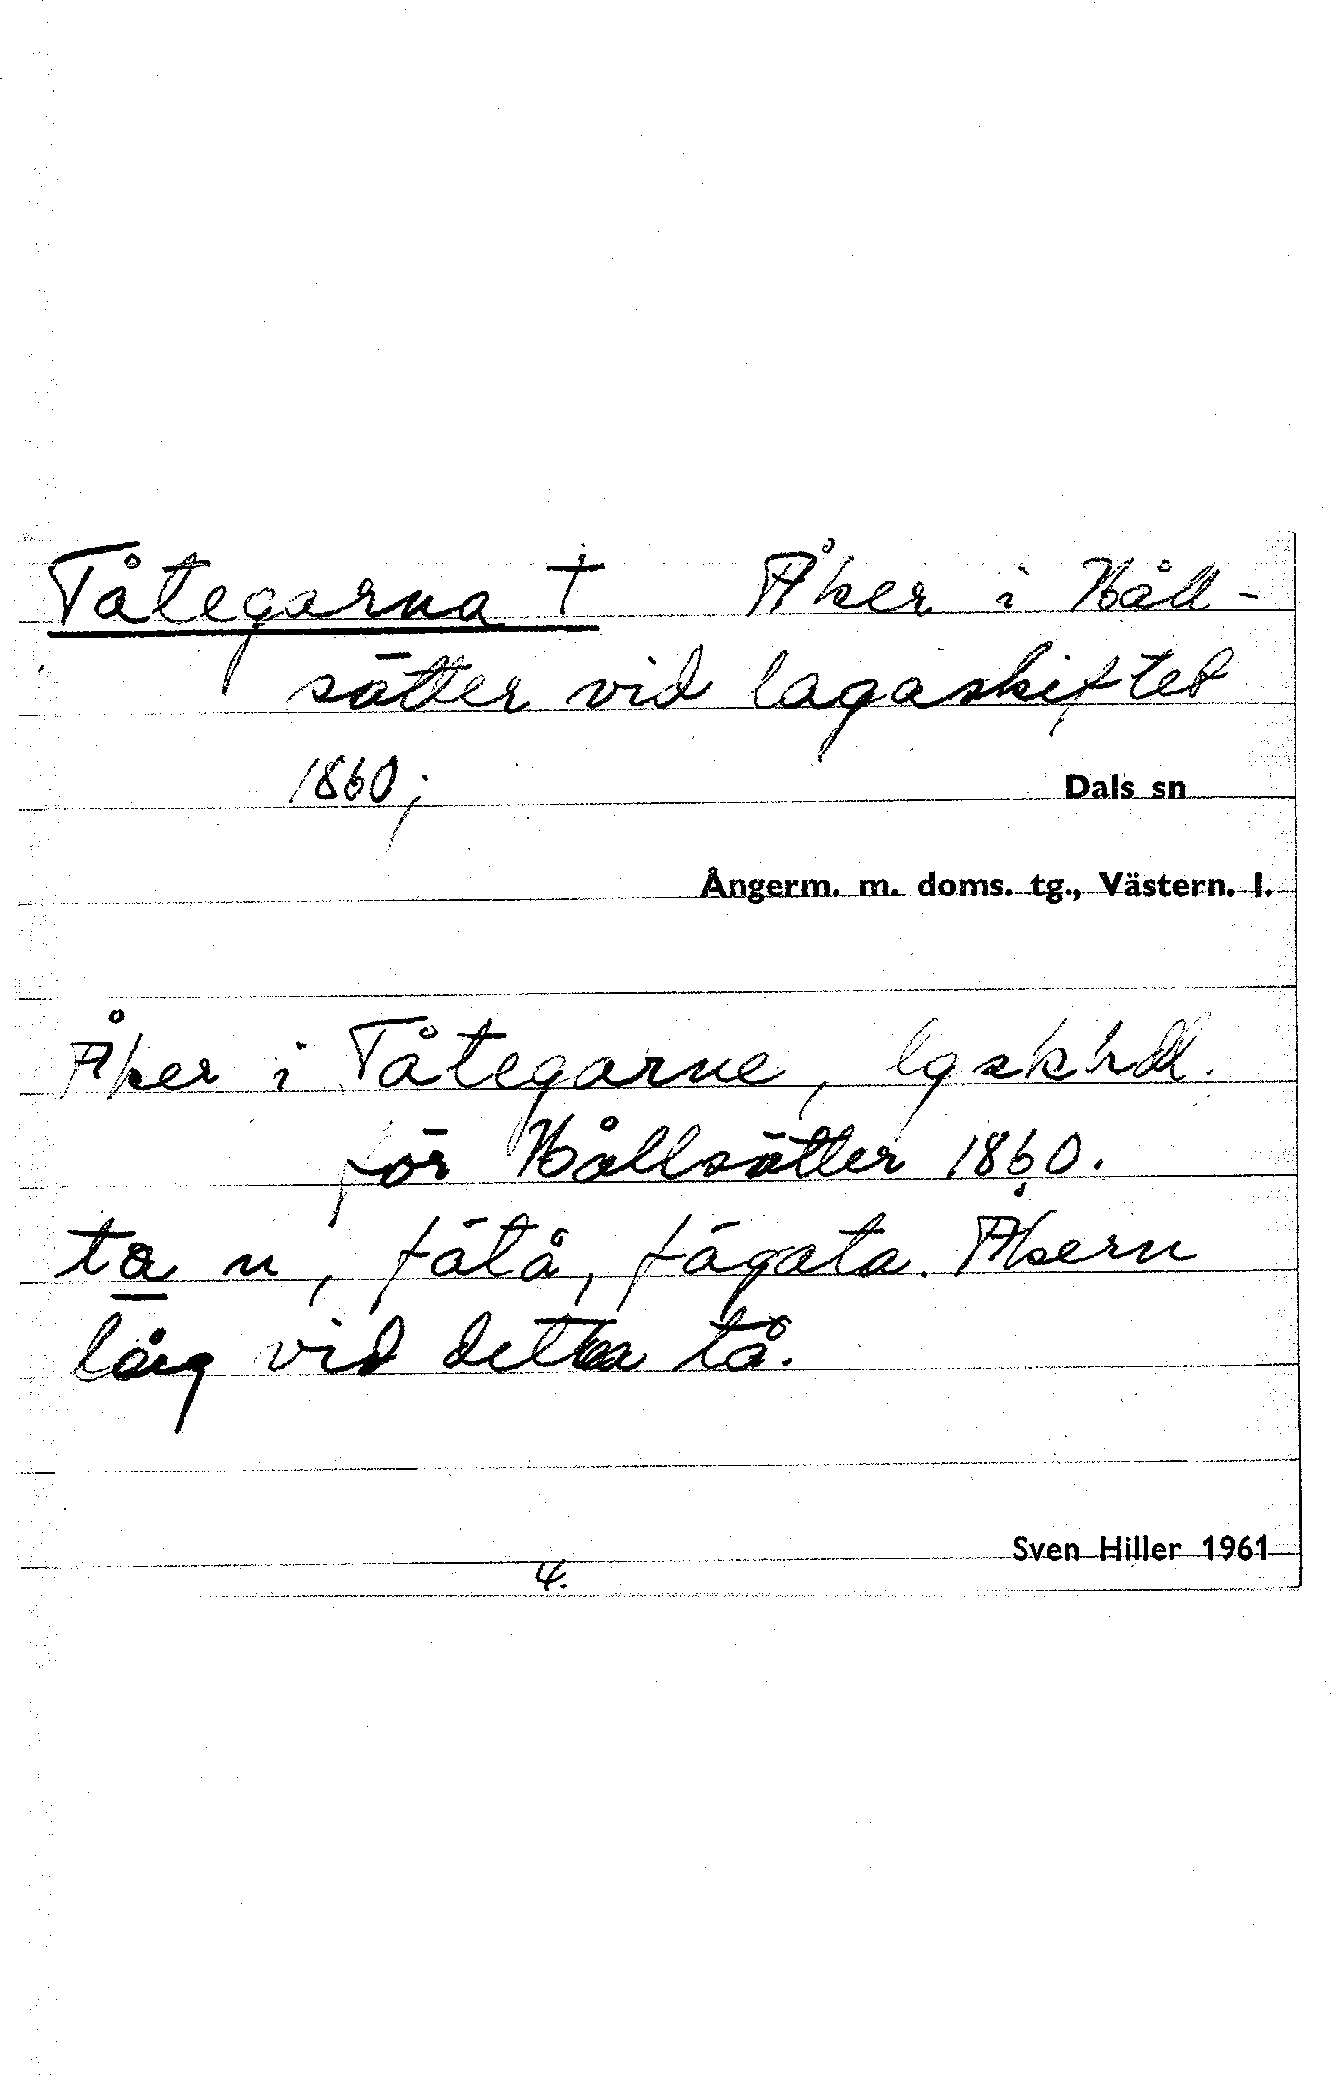 Tåtegarna † Åker i Håll-
sätter vid lagaskiftet
1860;
Dals sn
Ångerm. m. doms. tg., Västern. l.
Åker i Tåtegarne, lgskhdl.
för Hållsätter 1860.
ta n, fätå, fägata. Åkern
låg vid detta tå.
Sven Hiller 1961
4.